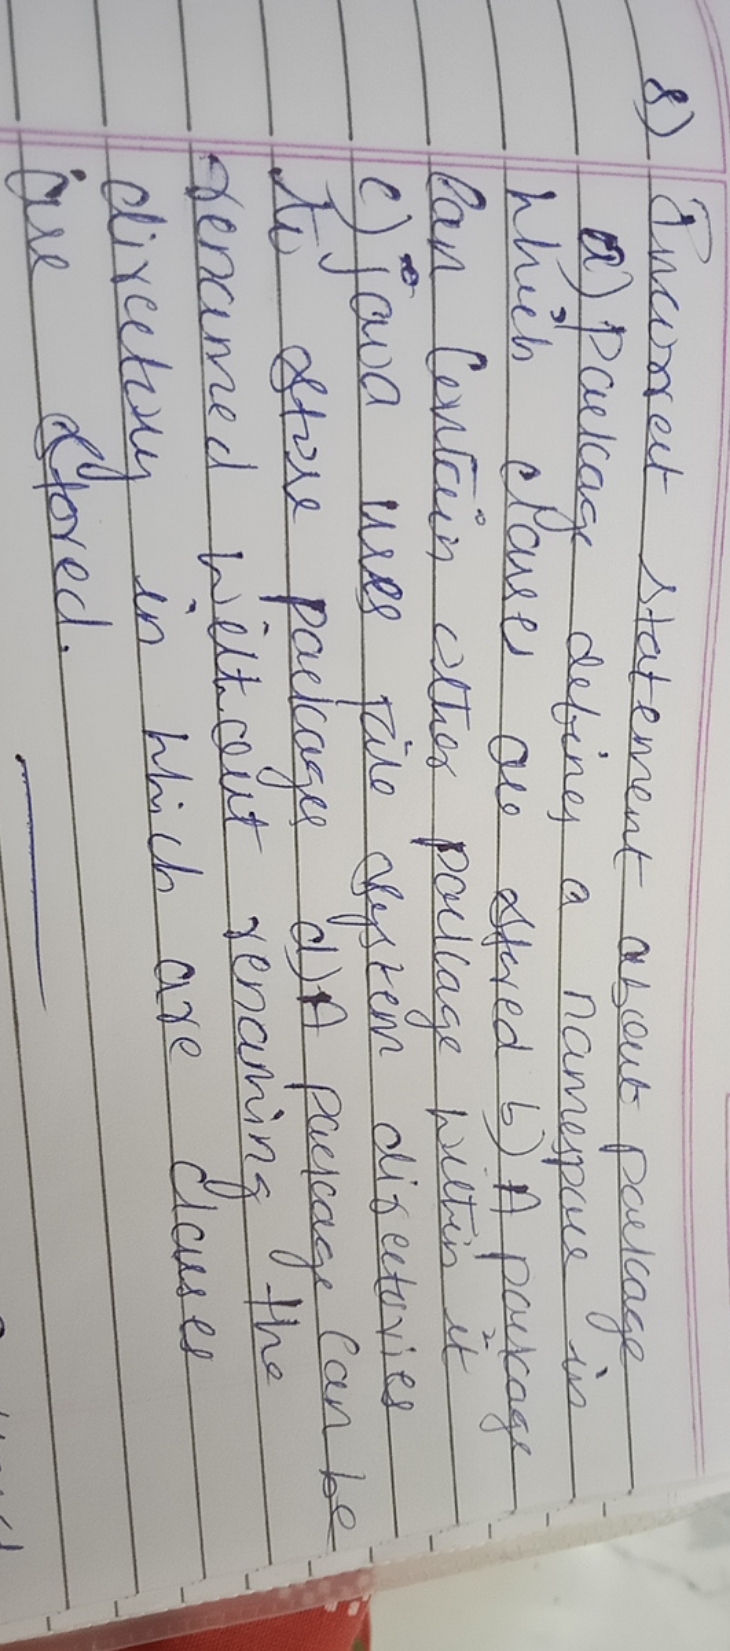 8) Incorrect statement about package
a) package defines a namespace in
which classes are stored b) A package
Can Contain other package within it
c) java uses file system directories
to store packages d) A package Can be
renamed without renaming the
directory in which are classes
are stored.